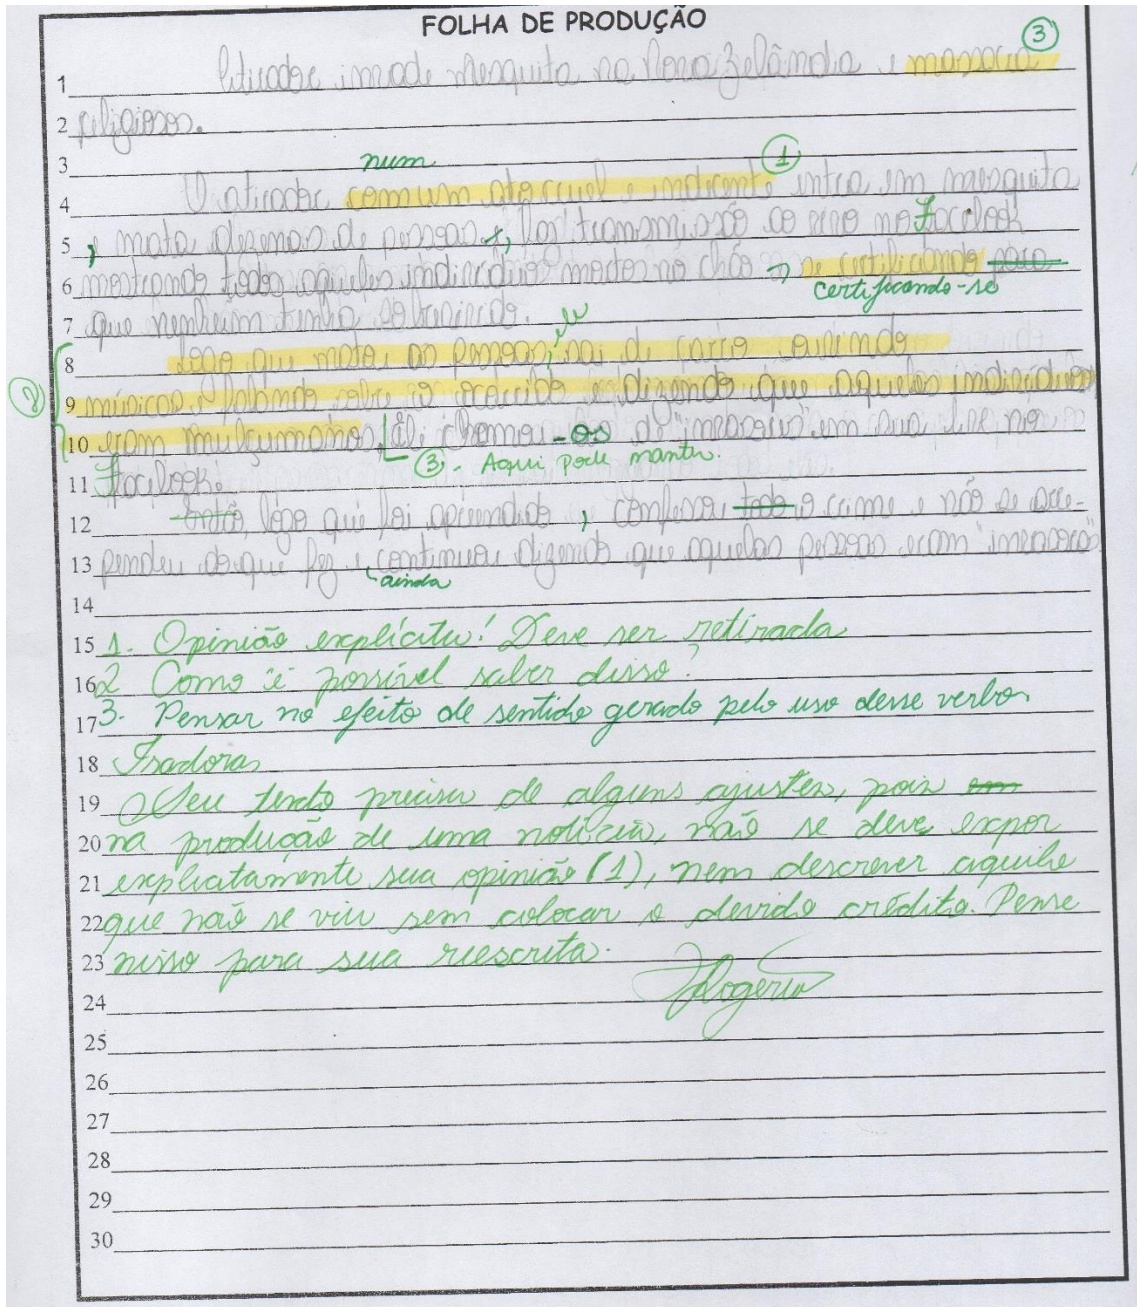 FOLHA DE PRODUÇÃO
3
1 Atirador invade Mesquita na Nova Zelândia e massacra
2 religiosos.
3 num 1
4 O atirador com um ato cruel e indecente entra em mesquita
5 , mata dezenas de pessoas e, faz transmissão ao vivo no Facebook
6 mostrando todos aqueles indivíduos mortos no chão e se certificando para
certificando-se
7 que nenhum tinha sobrevivido.
ele
8 Logo que matou as pessoas, sai de carro ouvindo
2
9 músicas e falando sobre o ocorrido e dizendo que aqueles indivíduos
10 eram mulçumanos. Ele chamou-os de "invasores" em sua live no
3. Aqui pode manter.
11 Facebook.
12 Então, logo que foi apreendido, confessou todo o crime e não se arre-
13 pendeu do que fez e continuou dizendo que aquelas pessoas eram "invasoras"
ainda
14
15 1. Opinião explícita! Deve ser retirada
16 2 Como é possível saber disso?
17 3. Pensar no efeito de sentido gerado pelo uso desse verbo.
18 Isadora,
19 Seu texto precisa de alguns ajustes, pois em
20 na produção de uma notícia, não se deve expor
21 explicitamente sua opinião (1), nem descrever aquilo
22 que não se viu sem colocar o devido crédito. Pense
23 nisso para sua reescrita.
Rogério
24
25
26
27
28
29
30